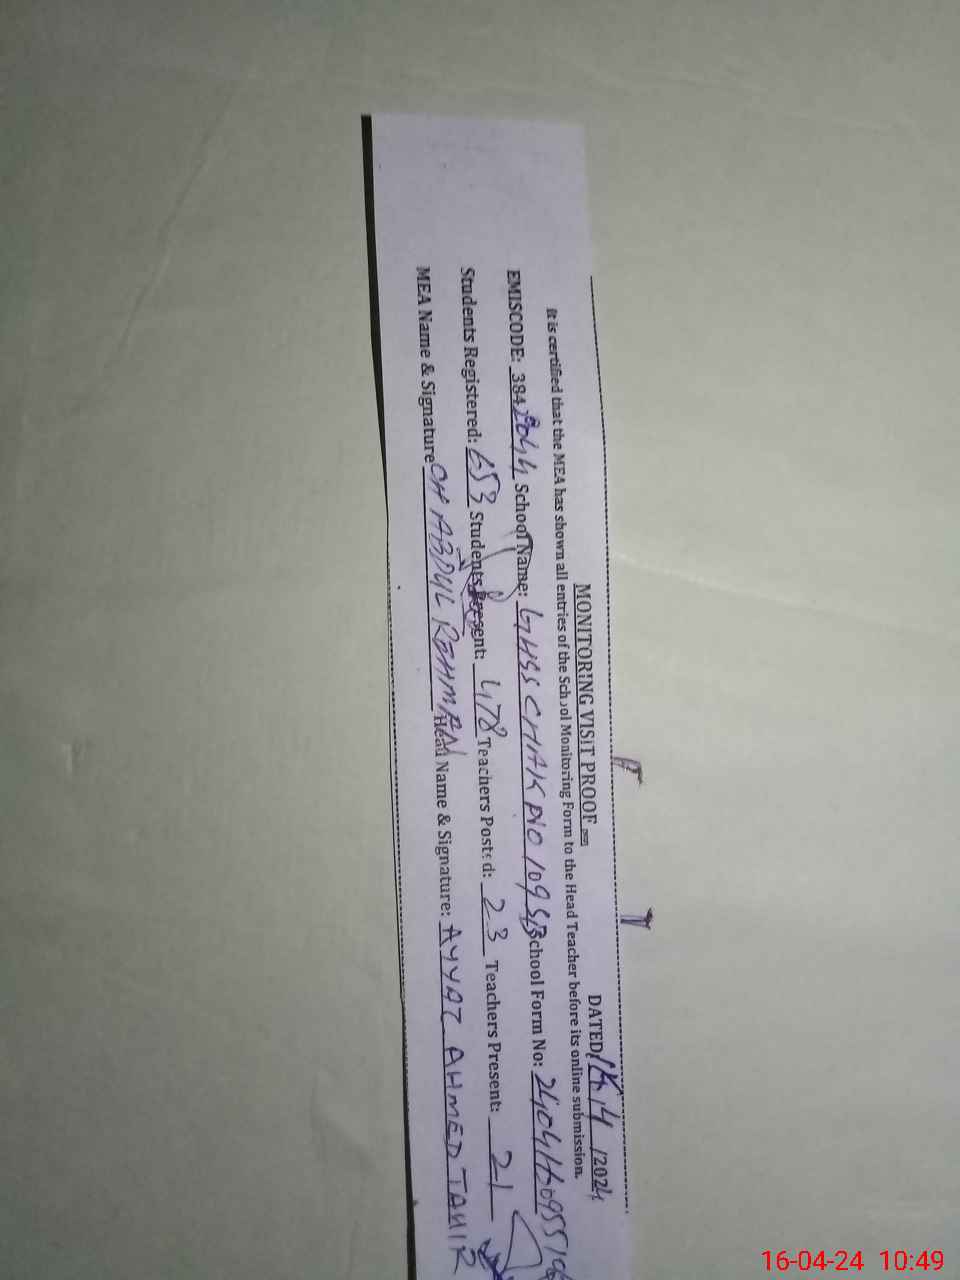 MONITORING VISIT PROOF
DATED 16/4/2024
It is certified that the MEA has shown all entries of the School Monitoring Form to the Head Teacher before its online submission.
EMISCODE: 384 School Name: GHSS CHAK NO 109 SB School Form No:
Students Registered: 653 Students Present: 478 Teachers Posted: 23 Teachers Present: 21
MEA Name & Signature CH ABDUL REHMAN Head Name & Signature: AYYAZ AHMED TAHIR
16-04-24 10:49